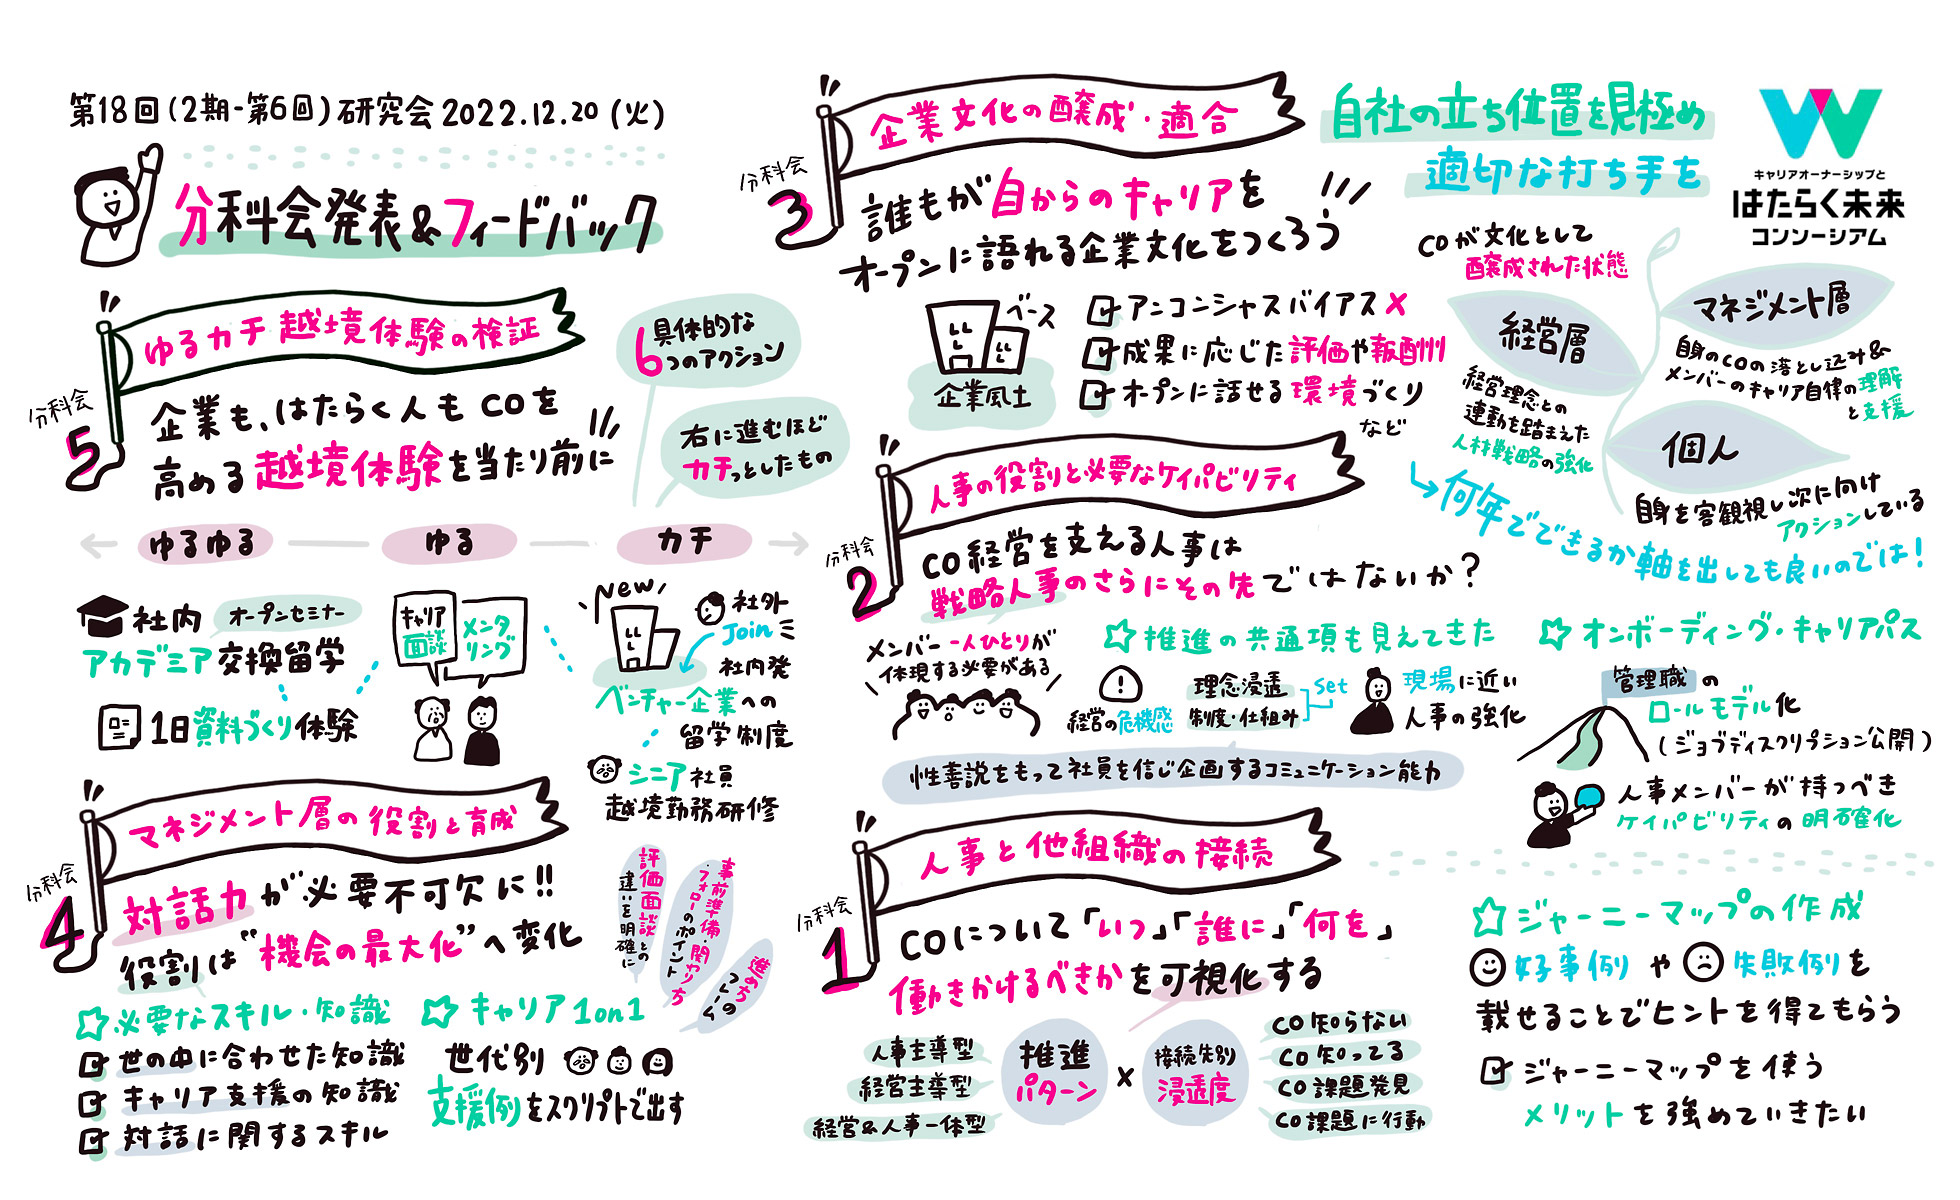 第18回(2期-第6回)研究会2022.12.20(火)
分科会発表&フィードバック
分科会5
ゆるカチ越境体験の検証
企業も、はたらく人もCOを
高める越境体験を当たり前に
具体的な
6つのアクション
右に進むほど
カチっとしたもの
ゆるゆる
ゆる
カチ
社内
オープンセミナー
アカデミア交換留学
1日資料づくり体験
キャリア
面談
メンタ
リング
New
社外
Join
社内発
ベンチャー企業への
留学制度
シニア社員
越境勤務研修
分科会4
マネジメント層の役割と育成
対話力が必要不可欠に!!
役割は"機会の最大化"へ変化
必要なスキル・知識
世の中に合わせた知識
キャリア支援の知識
対話に関するスキル
キャリア1on1
世代別
支援例をスクリプトで出す
評価面談との
違いを明確に
事前準備・関わり方
・フォローのポイント
進め方
のフレーム
分科会3
企業文化の醸成・適合
誰もが自からのキャリアを
オープンに語れる企業文化をつくろう
ベース
企業風土
アンコンシャスバイアス×
成果に応じた評価や報酬
オープンに話せる環境づくり
など
自社の立ち位置を見極め
適切な打ち手を
キャリアオーナーシップと
はたらく未来
コンソーシアム
COが文化として
醸成された状態
経営層
経営理念との
連動を踏まえた
人材戦略の強化
マネジメント層
自身のCOの落とし込み&
メンバーのキャリア自律の理解
と支援
個人
自身を客観視し次に向け
アクションしている
何年でできるか軸を出しても良いのでは!
分科会2
人事の役割と必要なケイパビリティ
CO経営を支える人事は
戦略人事のさらにその先ではないか?
メンバー一人ひとりが
体現する必要がある
推進の共通項も見えてきた
!
経営の危機感
理念浸透
制度・仕組み
set
現場に近い
人事の強化
性善説をもって社員を信じ企画するコミュニケーション能力
オンボーディング・キャリアパス
管理職の
ロールモデル化
(ジョブディスクリプション公開)
人事メンバーが持つべき
ケイパビリティの明確化
分科会1
人事と他組織の接続
COについて「いつ」「誰に」「何を」
働きかけるべきかを可視化する
人事主導型
経営主導型
経営&人事一体型
推進
パターン
×
接続先別
浸透度
CO知らない
CO知ってる
CO課題発見
CO課題に行動
ジャーニーマップの作成
好事例や失敗例を
載せることでヒントを得てもらう
ジャーニーマップを使う
メリットを強めていきたい